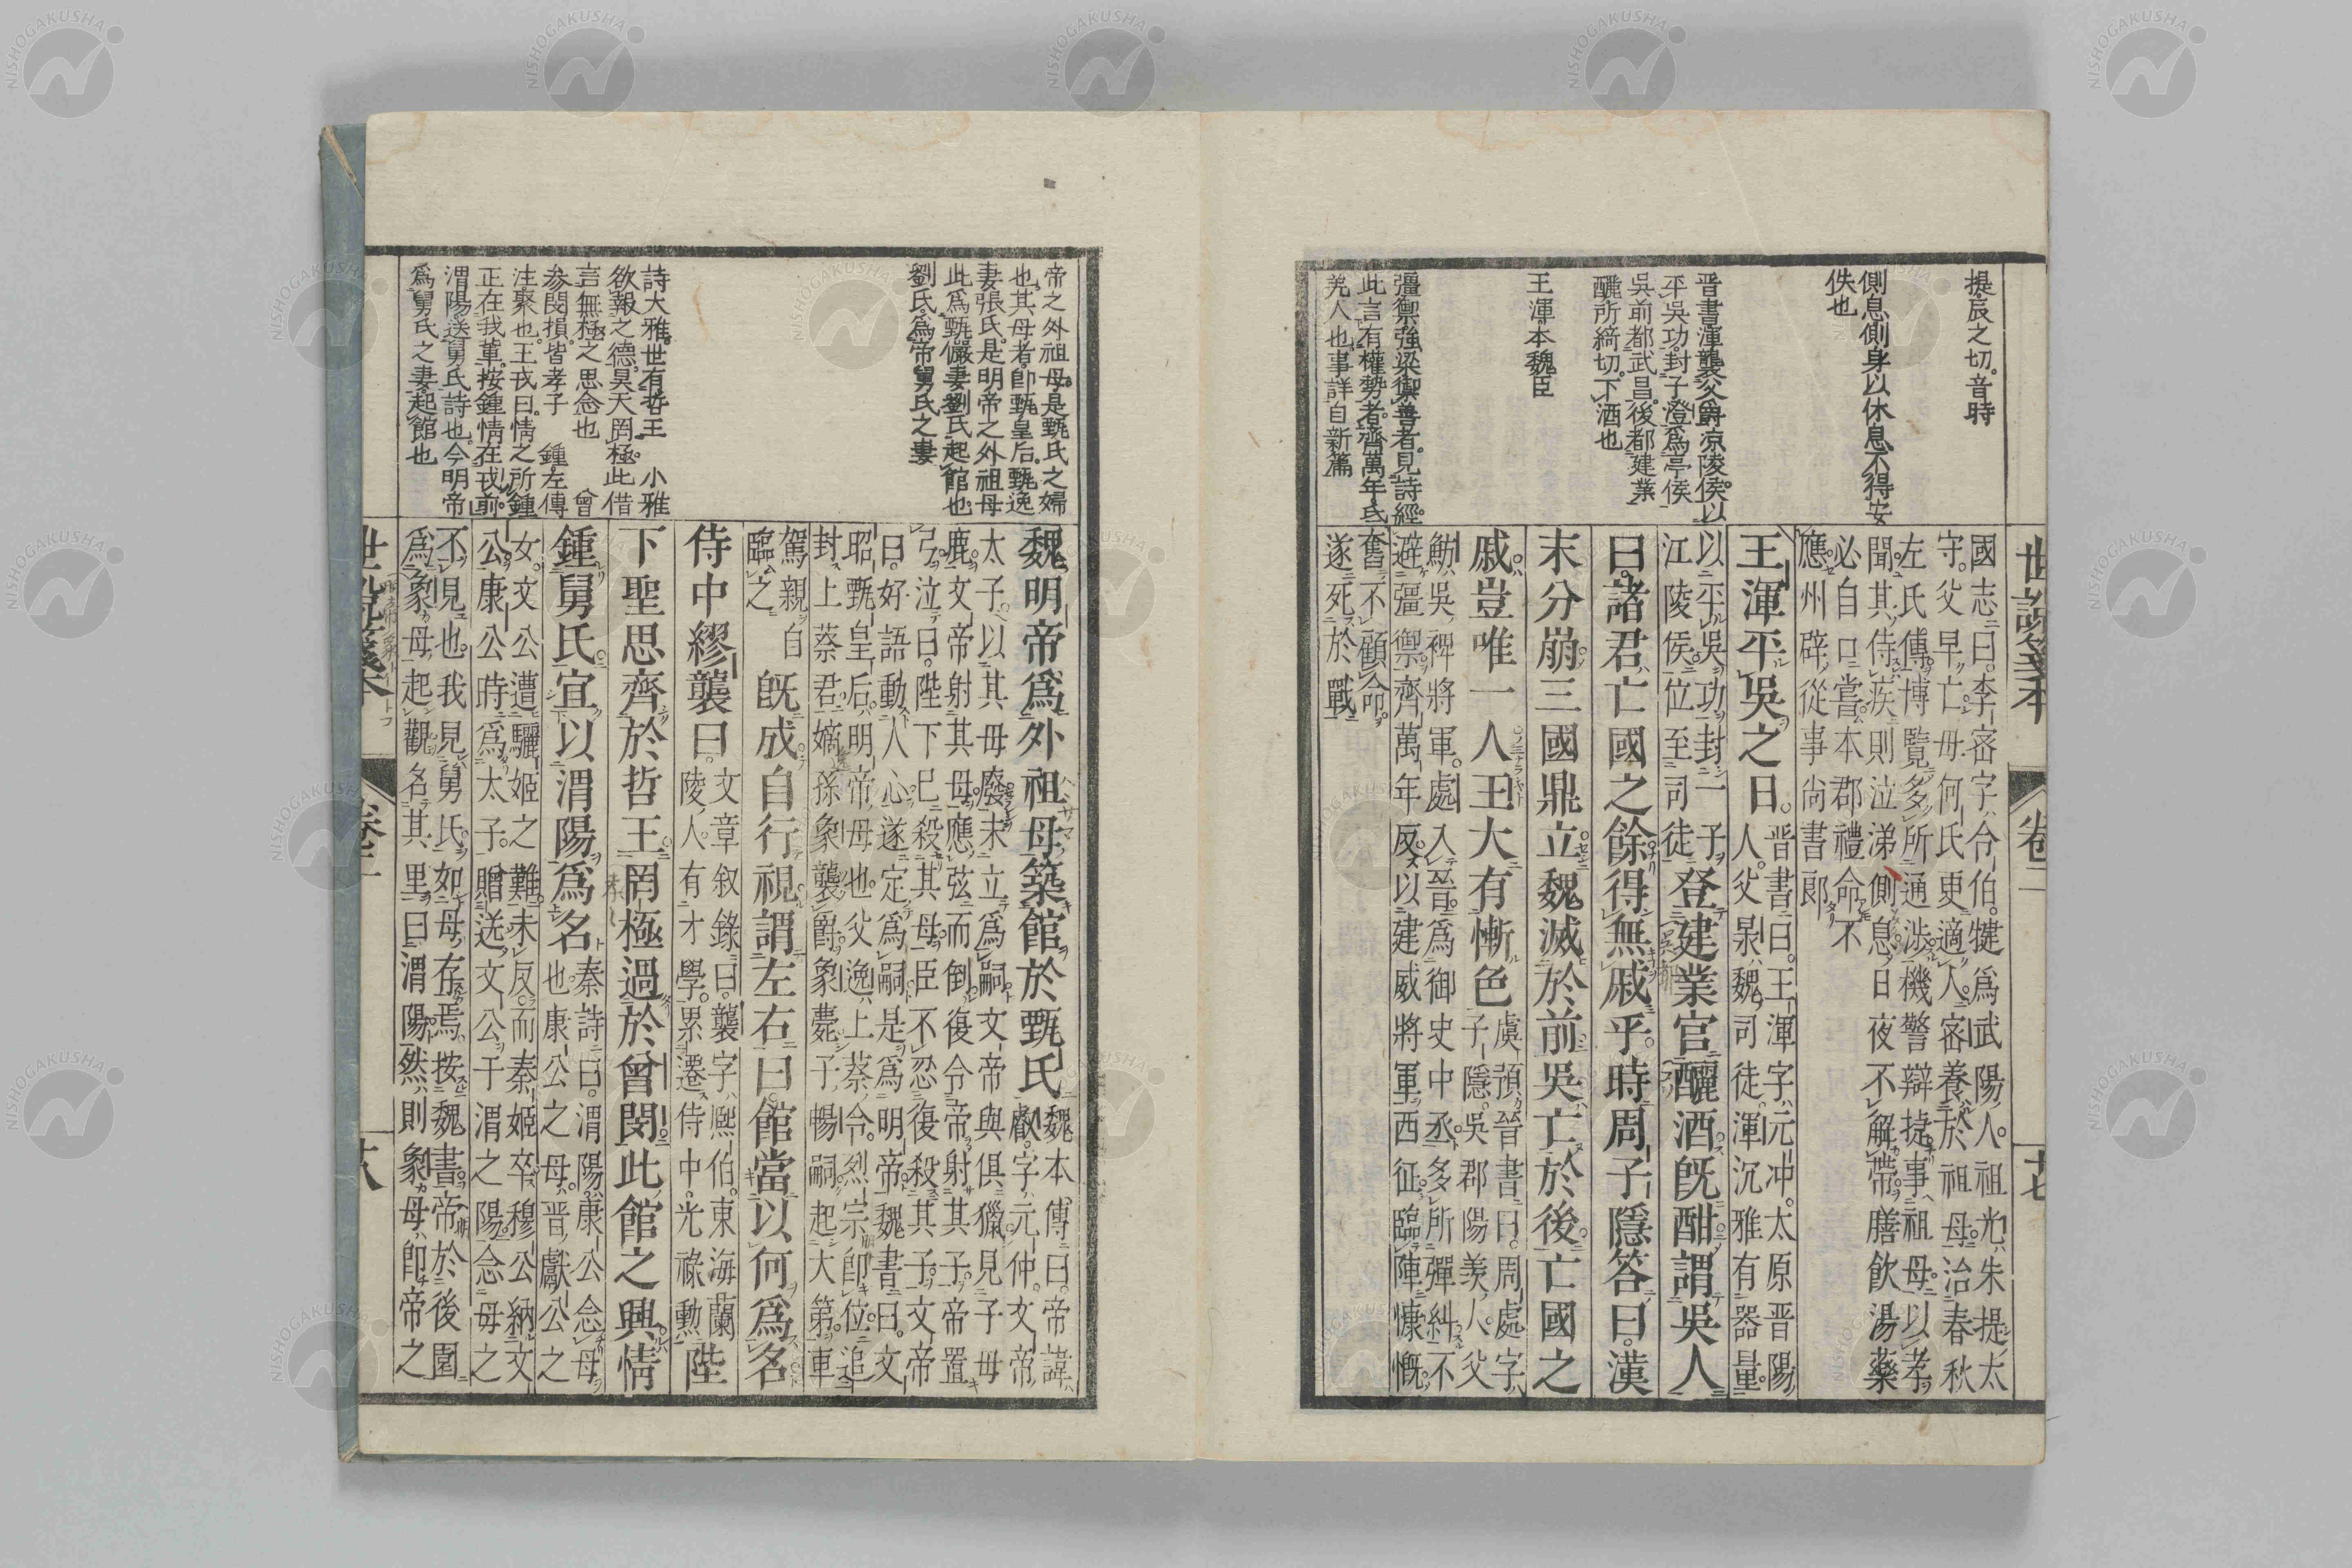 世說箋本 卷二 十七
提辰之切。音時
側息側身以休息不得安
佚也
晋書渾襲父爵凉陵侯以
平吳功封子澄爲亭侯
吳前都武昌。後都建業
釃所綺切。下酒也
王渾本魏臣
彊禦強梁禦善者。見詩經。
此言有權勢者齊萬年氐
羌人也事詳自新篇
國志曰李密字令伯。犍爲武陽人祖光朱提太
守。父早亡母何氏更適人。密養於祖母治春秋
左氏傳博覽多所通渉機警辯捷事祖母以孝
聞其侍疾則泣涕側息日夜不解帶。膳飲湯藥
必自口嘗本郡禮命不
應州辟從事尚書郎
王渾平吳之日。
晋書曰。王渾字元冲。太原晋陽
人。父㫤魏司徒。渾沉雅有器量。
以平吳功封一子
江陵侯位至司徒
登建業宮釃酒既酣謂吳人
曰諸君亡國之餘得無戚乎。時周子隱答曰漢
末分崩三國鼎立魏滅於前吳亡於後亡國之
戚豈唯一人王大有慚色
虞預晉書曰。周處字
子隱。吳郡陽羨人。父
魴吳裨將軍。處入晋。爲御史中丞多所彈糾不
避彊禦齊萬年反以建威將軍西征臨陣慷慨
奮不顧命。
遂死於戰
帝之外祖母是甄氏之婦
也其母者。卽甄皇后。甄逸
妻張氏。是明帝之外祖母
此爲甄儼妻劉氏起館也。
劉氏爲帝舅氏之妻
詩大雅。世有哲王 小雅
欲報之德昊天罔極此借
言無極之思念也 曾
参閔損皆孝子 鍾左傳
注聚也。王戎曰。情之所鍾
正在我輩。按鍾情在戎前。
渭陽。送舅氏詩也。今明帝
爲舅氏之妻起館也
魏明帝爲外祖母築館於甄氏
魏本傳曰。帝諱
叡字元仲。文帝
太子以其母廢未立爲嗣文帝與俱獵見子母
鹿文帝射其母應弦而倒復令帝射其子帝置
弓泣曰。陛下已殺其母臣不忍復殺其子文帝
曰好語動人心遂定爲嗣是爲明帝魏書曰。文
昭甄皇后明帝母也父逸上蔡令。烈宗卽位追
封上蔡君嫡孫象襲爵象薨子暢嗣起大第車
駕親自
臨之
既成自行視謂左右曰館當以何爲名
侍中繆襲曰。
文章叙錄曰襲字熈伯。東海蘭
陵人。有才學。累遷侍中光祿勳
陛
下聖思齊於哲王罔極過於曾閔此館之興情
鍾舅氏宜以渭陽爲名
秦詩曰。渭陽康公念母
也康公之母晋獻公之
女。文公遭驪姬之難未反。而秦姬卒穆公納文
公。康公時爲太子。贈送文公于渭之陽念母之
不見也。我見舅氏如母存焉。按魏書帝於後園
爲象母起觀名其里曰渭陽然則象母卽帝之
世說箋本 卷二 十八